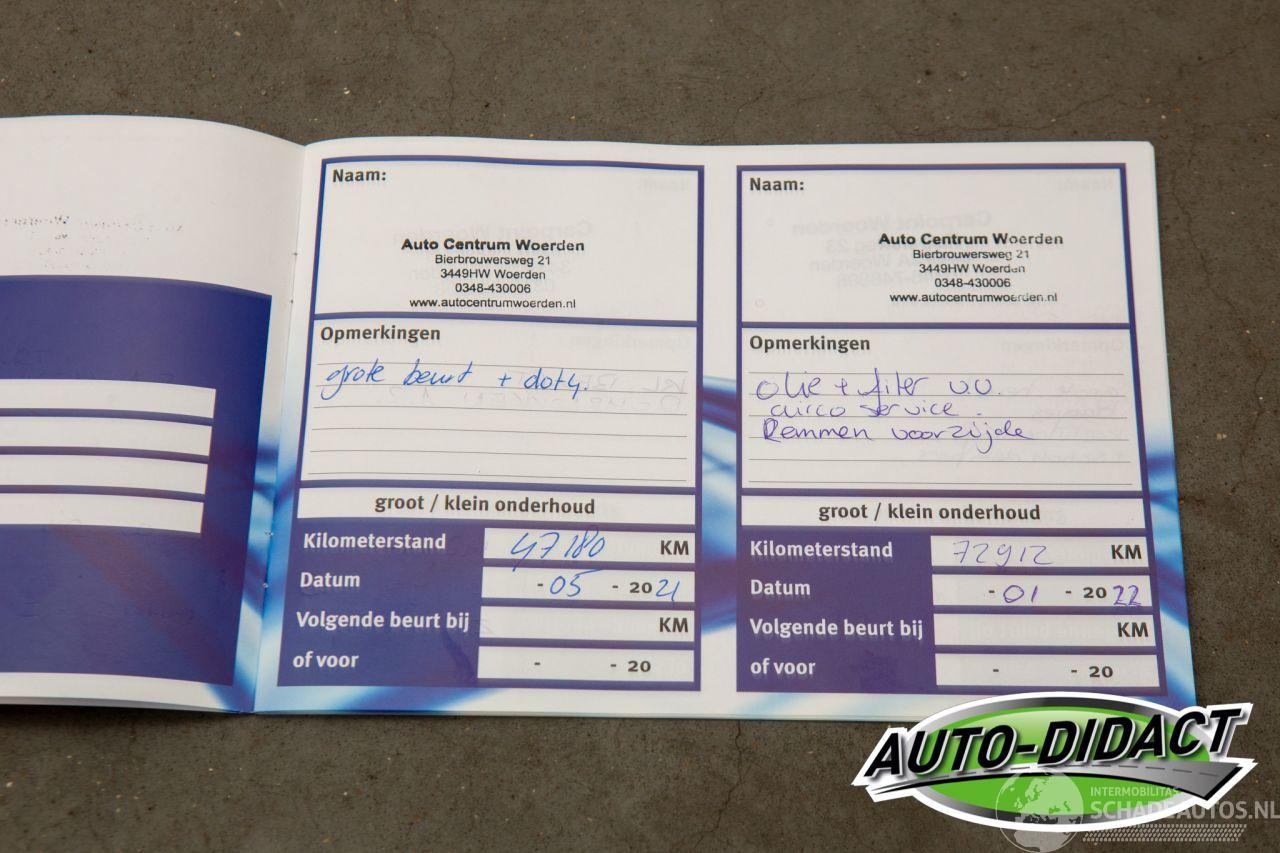 Naam:
Auto Centrum Woerden
Bierbrouwersweg 21
3449HW Woerden
0348-430006
www.autocentrumwoerden.nl
Opmerkingen
grote beurt + dot4.
groot / klein onderhoud
Kilometerstand 47180 KM
Datum - 05 - 2021
Volgende beurt bij KM
of voor - - 20
Naam:
Auto Centrum Woerden
Bierbrouwersweg 21
3449HW Woerden
0348-430006
www.autocentrumwoerden.nl
Opmerkingen
olie + filter v.v.
airco service.
Remmen voorzijde
groot / klein onderhoud
Kilometerstand 72912 KM
Datum - 01 - 2022
Volgende beurt bij KM
of voor - - 20
AUTO-DIDACT
INTERMOBILITAS
SCHADEAUTOS.NL